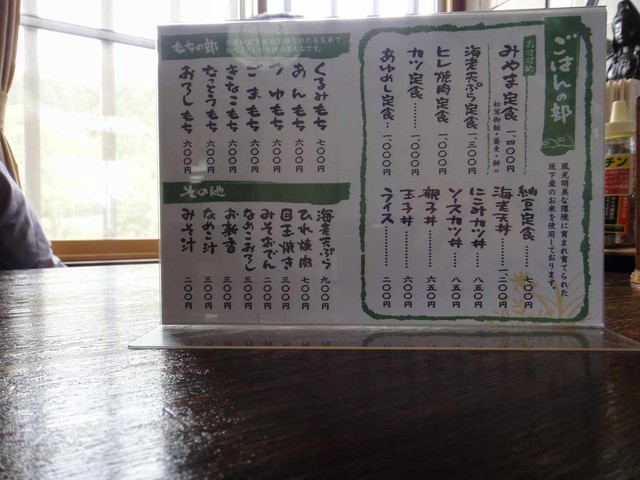 ごはんの部
風光明美な環境に育まれ育てられた
坂下産のお米を使用しております。
おすすめ
みやま定食 一、四〇〇円
松茸御飯・蕎麦・餅り
海老天ぷら定食 一、三〇〇円
ヒレ焼肉定食 一、〇〇〇円
カツ定食 一、〇〇〇円
あゆめし定食 一、〇〇〇円
納豆定食 七〇〇円
海老天丼 一、二〇〇円
にこみカツ丼 八五〇円
ソースカツ丼 八五〇円
親子丼 六五〇円
玉子丼 六〇〇円
ライス 二〇〇円
もちの部
くるみもち 七〇〇円
あんもち 六〇〇円
つゆもち 六〇〇円
ごまもち 六〇〇円
きなこもち 六〇〇円
なっとうもち 六〇〇円
おろしもち 六〇〇円
その他
海老天ぷら 九〇〇円
ひれ焼肉 七〇〇円
目玉焼き 三〇〇円
みそおでん 二〇〇円
なめこおろし 三〇〇円
お新香 三〇〇円
なめこ汁 三〇〇円
みそ汁 二〇〇円
チン